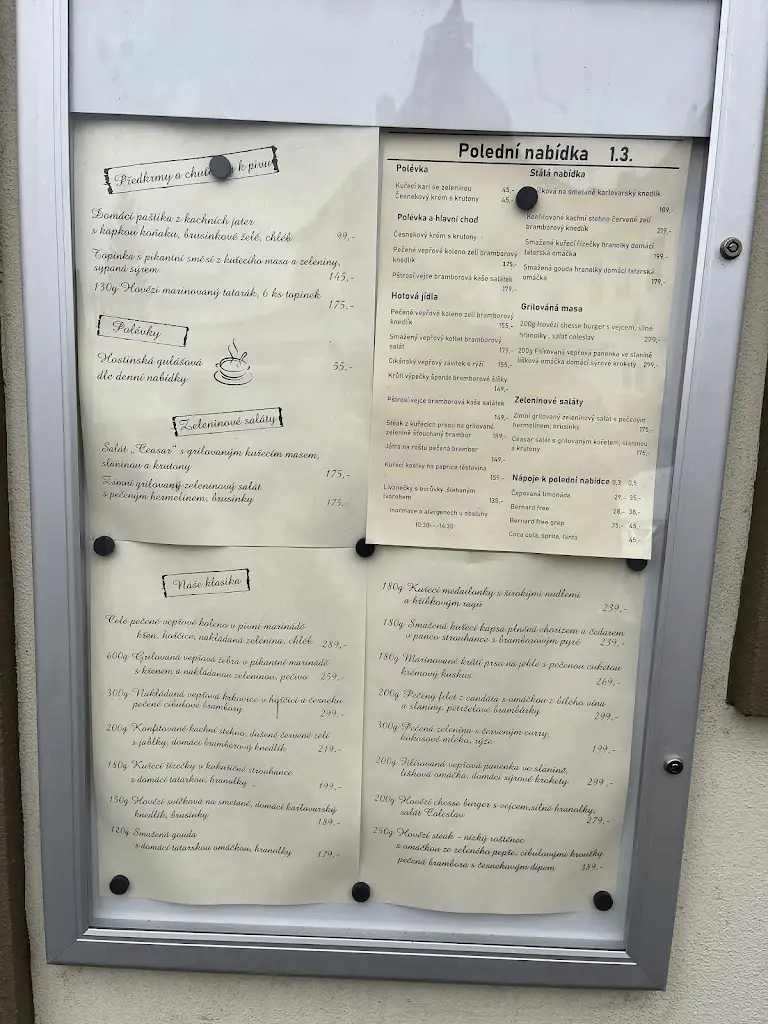 Předkrmy a k pivu
Domácí paštika z kachních jater
s kapkou koňaku, brusinkové želé, chléb 99,-
Topinka s pikantní směsí z kuřecího masa a zeleniny,
sypaná sýrem 145,-
130g Hovězí marinovaný tatarák, 6 ks topinek
175,-
Polévky
Hostinská gulášová 55,-
dle denní nabídky
Zeleninové saláty
Salát „Ceasar" s grilovaným kuřecím masem,
slaninou a krutony 175,-
Zimní grilovaný zeleninový salát
s pečeným hermelínem, brusinky 175,-
Polední nabídka 1.3.
Polévka
Kuřecí kari se zeleninou 45,-
Česnekový krém s krutony 45,-
Polévka a hlavní chod
Česnekový krém s krutony
Pečené vepřové koleno zelí bramborový
knedlík 175,-
Pštrosí vejce bramborová kaše salátek
179,-
Hotová jídla
Pečené vepřové koleno zelí bramborový
knedlík 155,-
Smažený vepřový kotlet bramborový
salát 179,-
Cikánský vepřový závitek s rýží 155,-
Krůtí výpečky špenát bramborové šišky
149,-
Pštrosí vejce bramborová kaše salátek
149,-
Steak z kuřecích prsou na grilované
zelenině šťouchaný brambor 159,-
Játra na roštu pečená brambor
149,-
Kuřecí kostky na paprice těstovina
159,-
Lívanečky s borůvky, šlehaným
tvarohem 135,-
Informace o alergenech u obsluhy
10:30---14:30
Stálá nabídka
na smetaně karlovarský knedlík
189,-
Konfitované kachní stehno červené zelí
bramborový knedlík 219,-
Smažené kuřecí řízečky hranolky domácí
tatarská omáčka 199,-
Smažená gouda hranolky domácí tatarská
omáčka 179,-
Grilovaná masa
200g Hovězí chesse burger s vejcem, silné
hranolky, salát coleslav 279,-
200g Filírovaná vepřová panenka ve slanině
lišková omáčka domácí sýrové krokety 299,-
Zeleninové saláty
Zimní grilovaný zeleninový salát s pečeným
hermelínem, brusinky 175,-
Ceasar salát s grilovaným kuřetem, slaninou
a krutony 175,-
Nápoje k polední nabídce 0,3 0,5
Čepovaná limonáda 29,- 35,-
Bernard free 28,- 38,-
Bernard free grep 35,- 45,-
Coca cola, sprite, fanta 45,-
Naše klasika
Celé pečené vepřové koleno v pivní marinádě
křen, hořčice, nakládaná zelenina, chléb 289,-
600g Grilovaná vepřová žebra v pikantní marinádě
s křenem a nakládanou zeleninou, pečivo 259,-
300g Nakládaná vepřová krkovice v hořčici a česneku
pečené cibulové brambory 299,-
200g Konfitované kachní stehno, dušené červené zelí
s jablky, domácí bramborový knedlík 219,-
180g Kuřecí řízečky v kukuřičné strouhance
s domácí tatarkou, hranolky 199,-
150g Hovězí svíčková na smetaně, domácí karlovarský
knedlík, brusinky 189,-
120g Smažená gouda
s domácí tatarskou omáčkou, hranolky 179,-
180g Kuřecí medailonky s širokými nudlemi
a hříbkovým ragú 239,-
180g Smažená kuřecí kapsa plněná chorizem a čedarem
v panco strouhance s bramborovým pyré 239,-
180g Marinované krůtí prso na jehle s pečenou cuketou
krémový kuskus 269,-
200g Pečený filet z candáta s omáčkou z bílého vína
a slaniny, petrželové brambůrky 299,-
300g Pečená zelenina s červeným curry,
kokosové mléko, rýže 199,-
200g Filírovaná vepřová panenka ve slanině,
lišková omáčka, domácí sýrové krokety 299,-
200g Hovězí chesse burger s vejcem,silné hranolky,
salát Coleslaw 279,-
250g Hovězí steak - nízký roštěnec
s omáčkou ze zeleného pepře, cibulovými kroužky
pečená brambora s česnekovým dipem 389,-